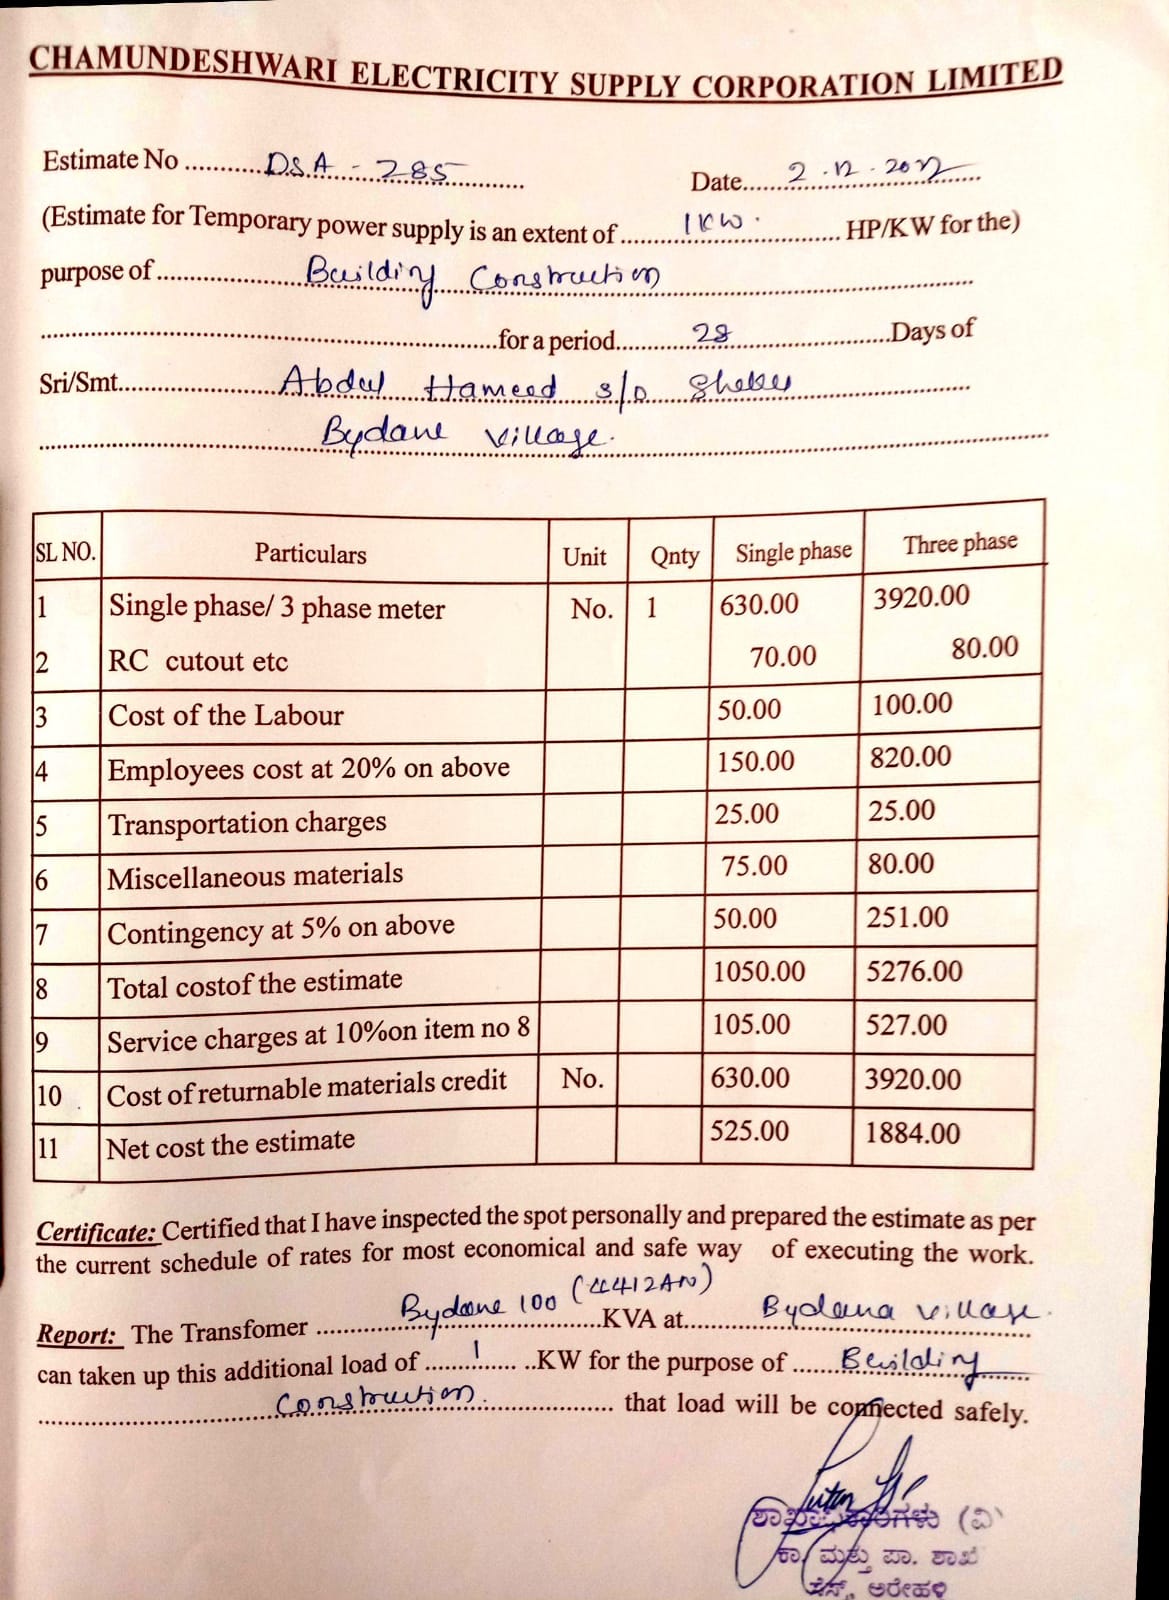 CHAMUNDESHWARI ELECTRICITY SUPPLY CORPORATION LIMITED
Estimate No ...........D.S.A - 285............
Date......2.12.2022......
(Estimate for Temporary power supply is an extent of......1KW.............. HP/KW for the)
purpose of......................Building Construction......................................
..................................................................for a period...........28......................Days of
Sri/Smt.......................Abdul Hameed s/o .........................
Bydane village.
SL NO. Particulars Unit Qnty Single phase Three phase
1 Single phase/ 3 phase meter No. 1 630.00 3920.00
2 RC cutout etc 70.00 80.00
3 Cost of the Labour 50.00 100.00
4 Employees cost at 20% on above 150.00 820.00
5 Transportation charges 25.00 25.00
6 Miscellaneous materials 75.00 80.00
7 Contingency at 5% on above 50.00 251.00
8 Total costof the estimate 1050.00 5276.00
9 Service charges at 10%on item no 8 105.00 527.00
10 Cost of returnable materials credit No. 630.00 3920.00
11 Net cost the estimate 525.00 1884.00
Certificate: Certified that I have inspected the spot personally and prepared the estimate as per
the current schedule of rates for most economical and safe way of executing the work.
Report: The Transfomer ............Bydane 100 (4412AN)............KVA at............Bydana village.
can taken up this additional load of .......1...... ..KW for the purpose of ......Building
..................................Construction................... that load will be connected safely.
ಶಾಖಾಧಿಕಾರಿಗಳು (ವಿ)
ಕಾ. ಮತ್ತು ಪಾ. ಶಾಖೆ
ಸೆಸ್ಕ್, ಅರೇಹಳ್ಳಿ